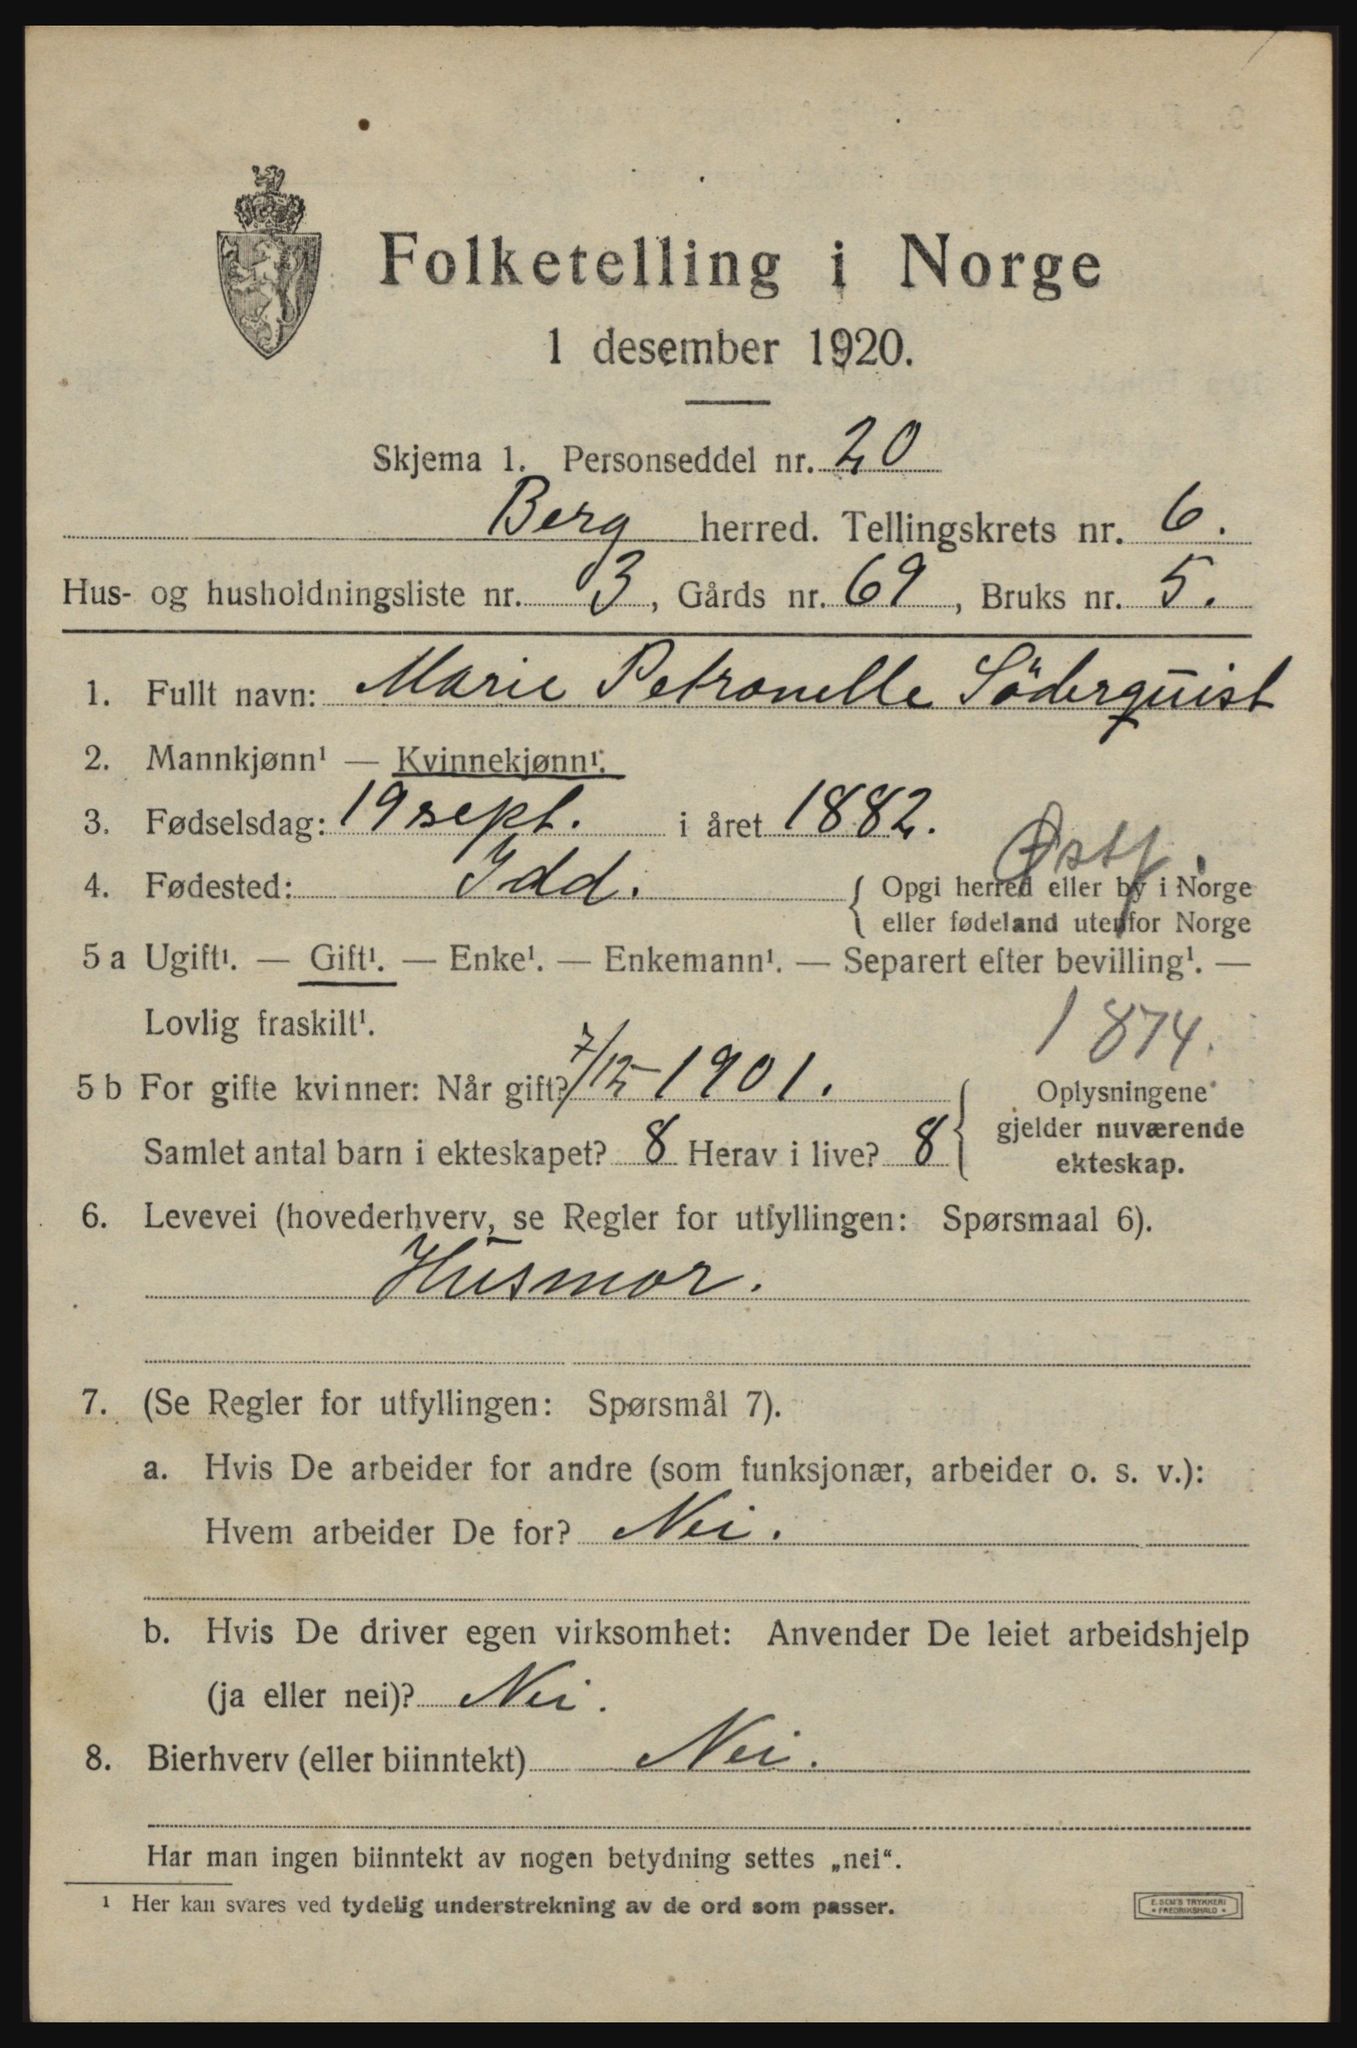 Folketelling i Norge
1 desember 1920.
Skjema 1. Personseddel nr. 20
Berg herred. Tellingskrets nr. 6.
Hus- og husholdningsliste nr. 3, Gårds nr. 69, Bruks nr. 5.
1. Fullt navn: Marie Petronelle Söderquist
2. Mannkjønn¹ — Kvinnekjønn¹.
3. Fødselsdag: 19 sept. i året 1882.
Østf.
4. Fødested: Idd. { Opgi herred eller by i Norge
eller fødeland utenfor Norge
5 a Ugift¹. — Gift¹. — Enke¹. — Enkemann¹. — Separert efter bevilling¹. —
Lovlig fraskilt¹.
1874.
5 b For gifte kvinner: Når gift? 7/12 1901. { Oplysningene
gjelder nuværende
Samlet antal barn i ekteskapet? 8 Herav i live? 8
ekteskap.
6. Levevei (hovederhverv, se Regler for utfyllingen: Spørsmaal 6).
Husmor.
7. (Se Regler for utfyllingen: Spørsmål 7).
a. Hvis De arbeider for andre (som funksjonær, arbeider o. s. v.):
Hvem arbeider De for? Nei.
b. Hvis De driver egen virksomhet: Anvender De leiet arbeidshjelp
(ja eller nei)? Nei.
8. Bierhverv (eller biinntekt) Nei.
Har man ingen biinntekt av nogen betydning settes „nei“.
¹ Her kan svares ved tydelig understrekning av de ord som passer.
E. SEM'S TRYKKERI
FREDRIKSHALD